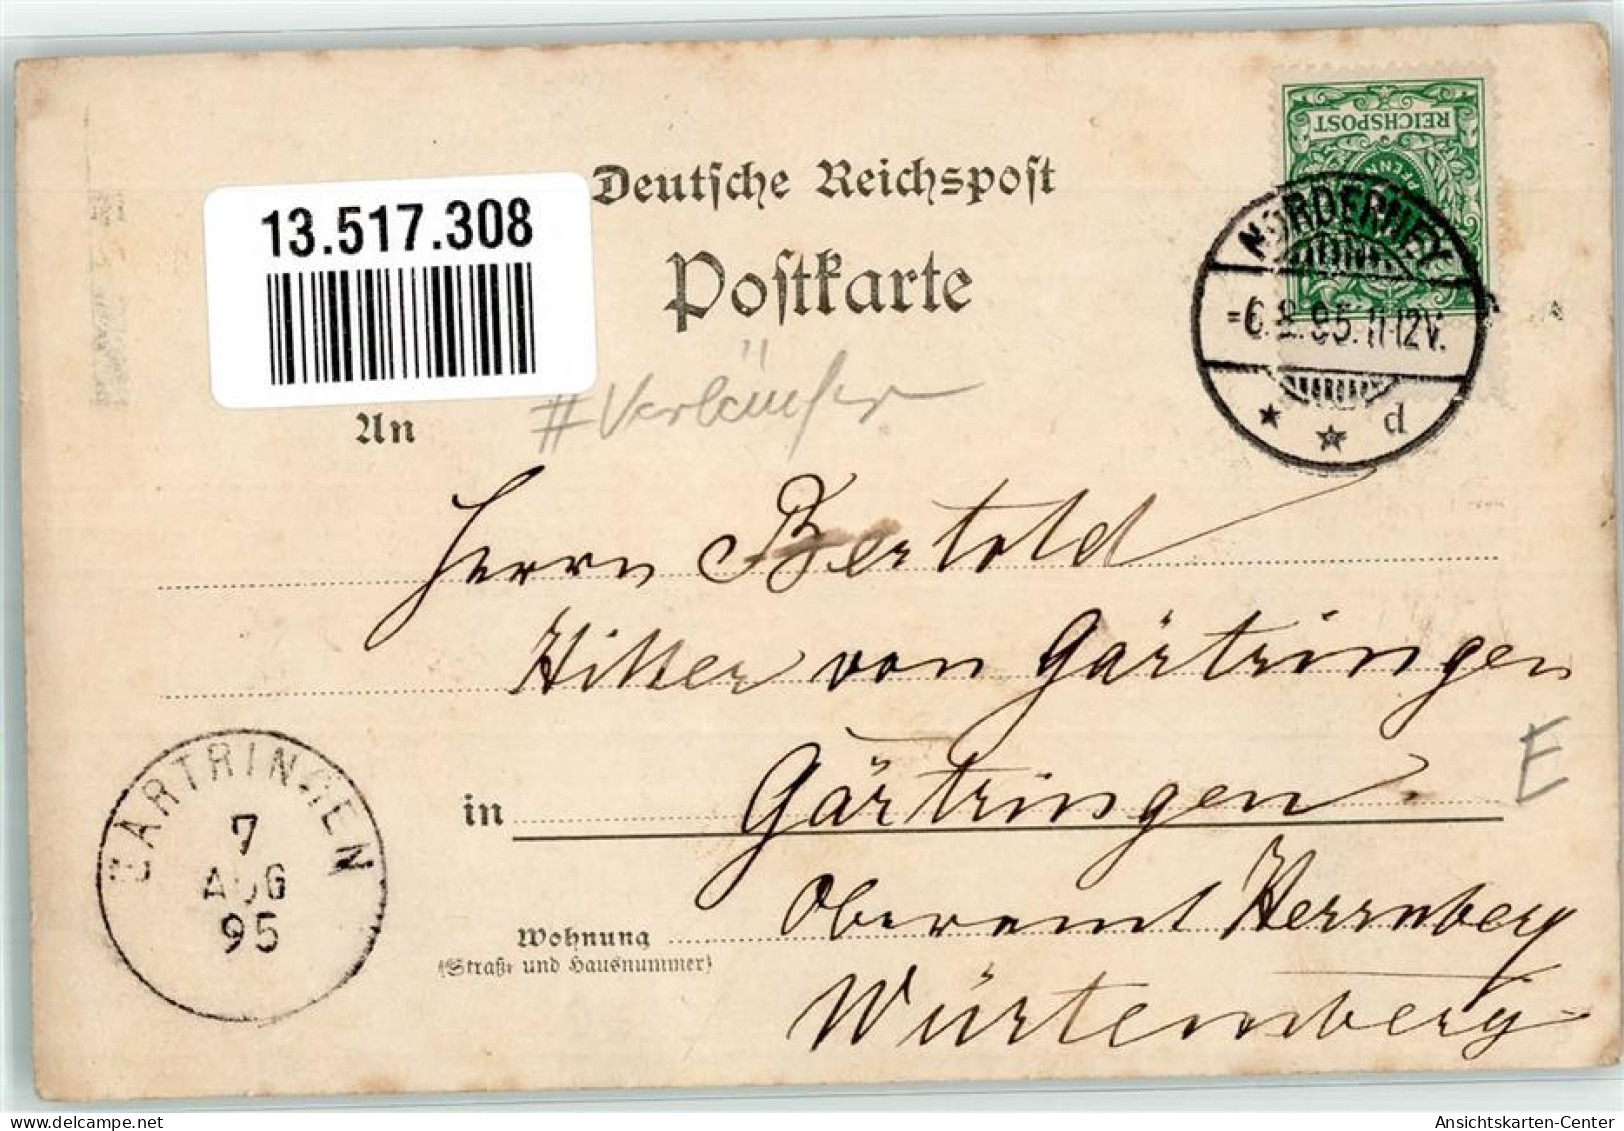 REICHSPOST
Deutsche Reichspost
13.517.308
Postkarte
NORDERNEY
6.8.95.11-12V.
d
#Verläufer
An
Herrn Bertold
Hiller von Gärtringen
in Gärtringen
GÄRTRINGEN
7
AUG
95
E
Oberamt Herrenberg
Wohnung
(Straße und Hausnummer)
Württemberg
Ansichtskarten-Center